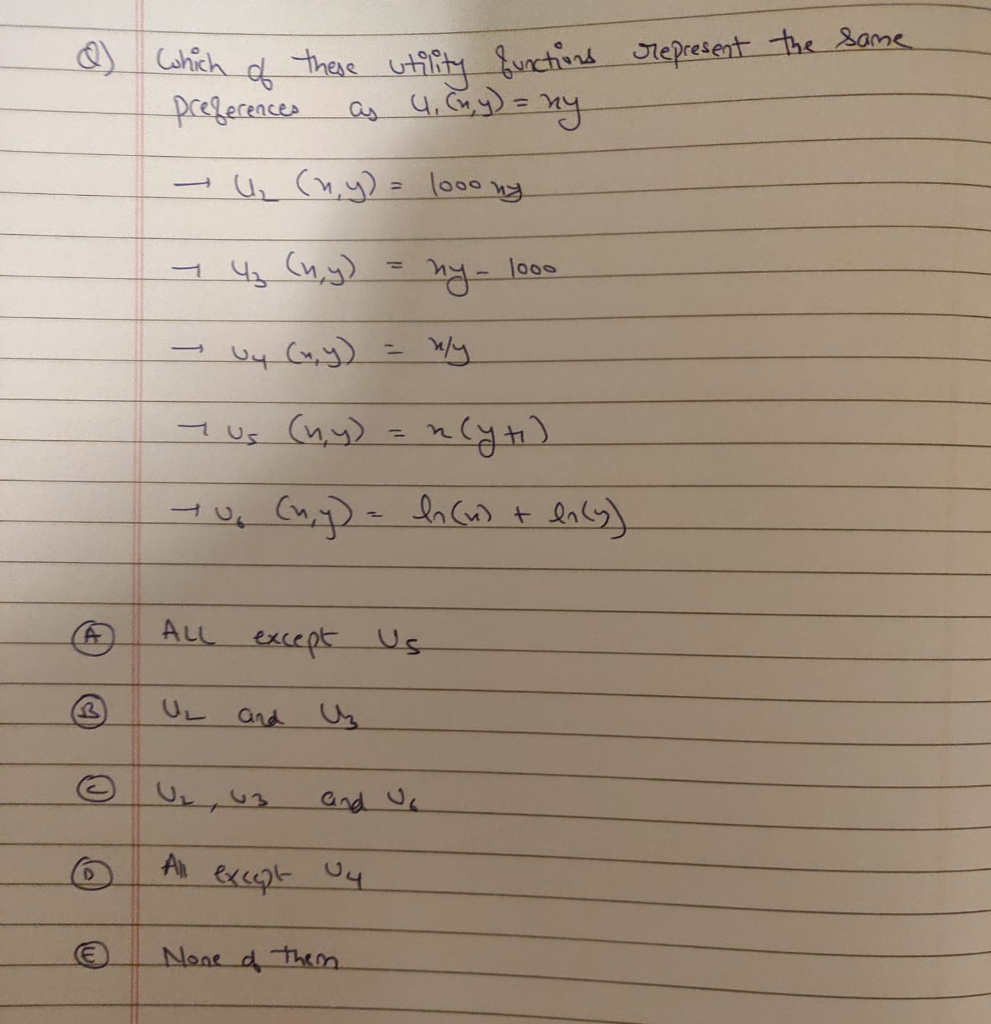 Q) Which of these utility functions represent the same
preferences as U₁(x,y) = xy
→ U₂ (x,y) = 1000 xy
→ U₃ (x,y) = xy - 1000
→ U₄ (x,y) = x/y
→ U₅ (x,y) = x(y+1)
→ U₆ (x,y) = ln(x) + ln(y)
A ALL except U₅
B U₂ and U₃
C U₂, U₃ and U₆
D All except U₄
E None of them